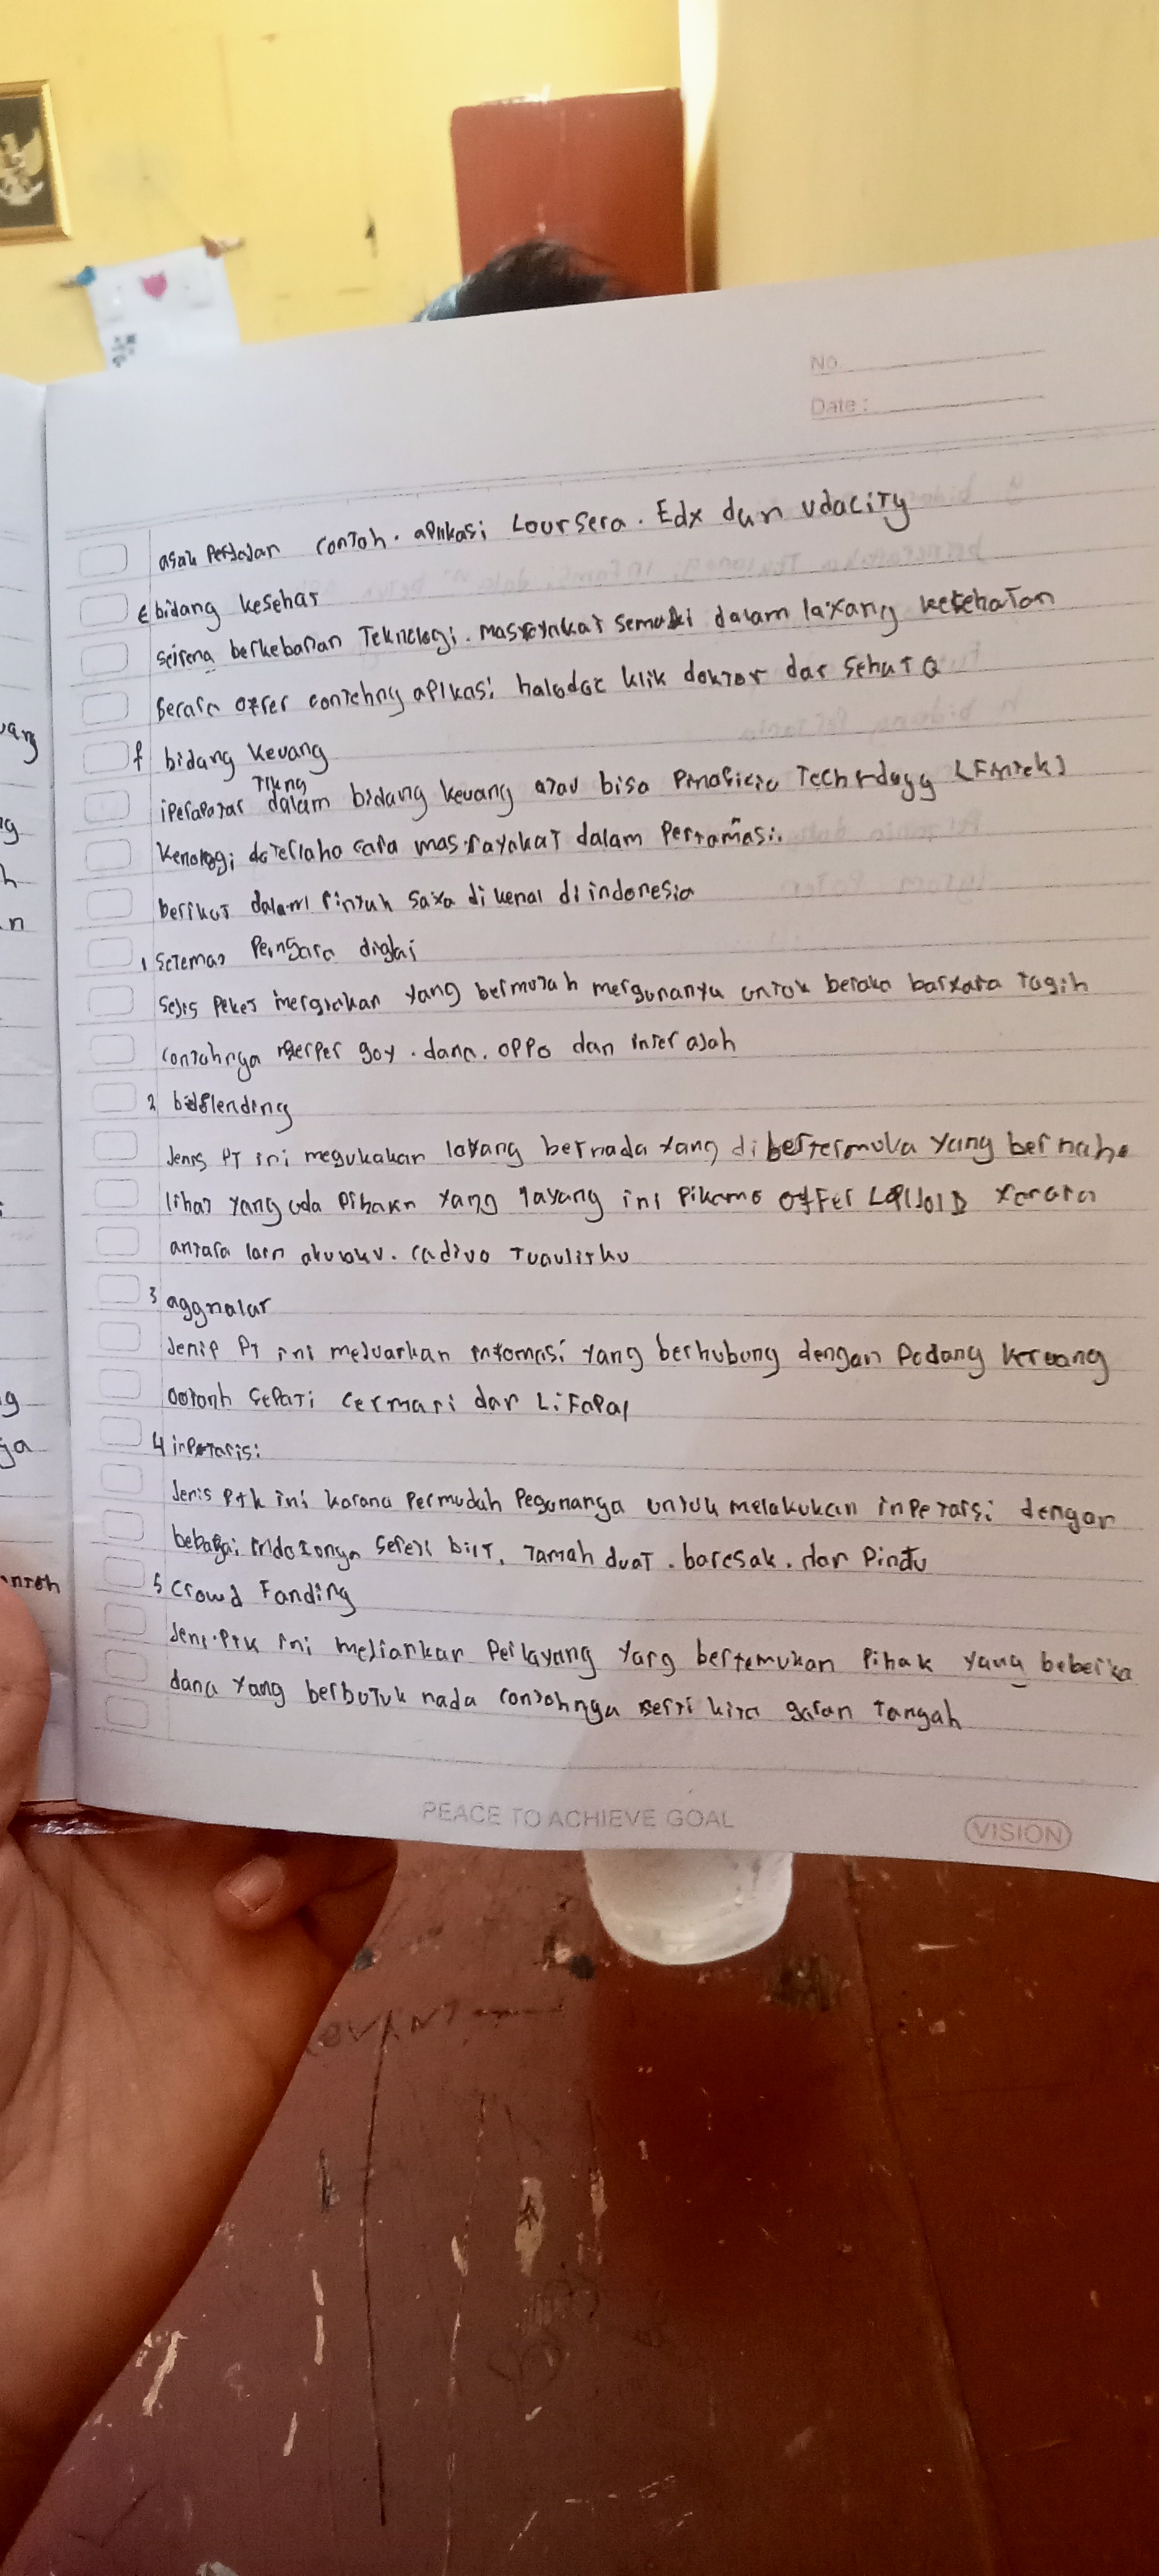 No.
Date :
asau Perjalan contoh. aplikasi Loursera. Edx dan udacity
E bidang kesehat
seirena berkebanan Teknologi. masyaynkat semaki dalam laxang kesehatan
secara offer contehny aplkasi halodoc klik doktor dar sehat Q
f bidang keuang
Tiung
iperapatar dalam bidang keuang atau bisa Pinaficic Techrdogy (Fintek)
kenologi daterlaho cara masrayakat dalam Pertamasi.
berikut dalaml Pintuh saxa di kenal di indonesia
1 Setemat Pemgara digitai
sejis Pekes mergrakan yang bermutah mergunanya untok berakn barxara Tagih
contohnya merper goy. dana. OPPO dan inter ajah
2 bidflending
Jenis PT ini megukakan layang bernada yang di bertermuka yang ber naho
lihat yang ada Pihakn yang layang ini Pikamo offer
antara lain akuuku. cadivo Tuaulitku
3 aggnalar
Jenip PT ini meluarkan infomasi yang berhubung dengan Podang keruang
ootonh sepati cermari dar LiFaPal
4 inPetaris:
Jenis Ptk ini karana Permudah Pegunanga untuk melakukan inPetarsi dengar
bebagai indozonya seferti biit, Tamah duat. baresak. dar Pintu
5 Crowd Fanding
Jeni.Ptk ini meliankar Perlayang yarg bertemukan Pihak yaug beberka
dana yang berbutuk nada contohnya serti kita gafan Tangah
PEACE TO ACHIEVE GOAL
VISION